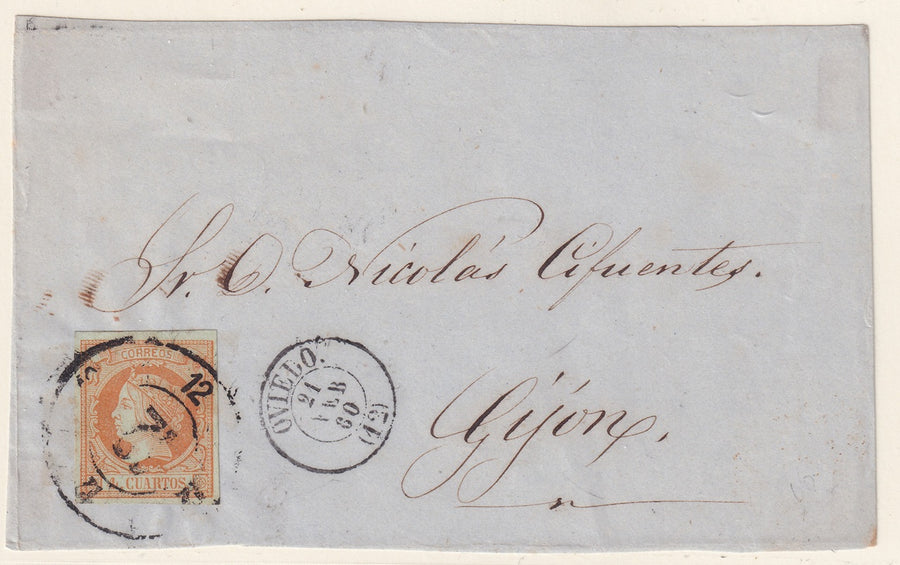 Sr. D. Nicolás Cifuentes.
Gijón,
CORREOS
CUARTOS
12
OVIEDO.
21
FEB
60
(12)